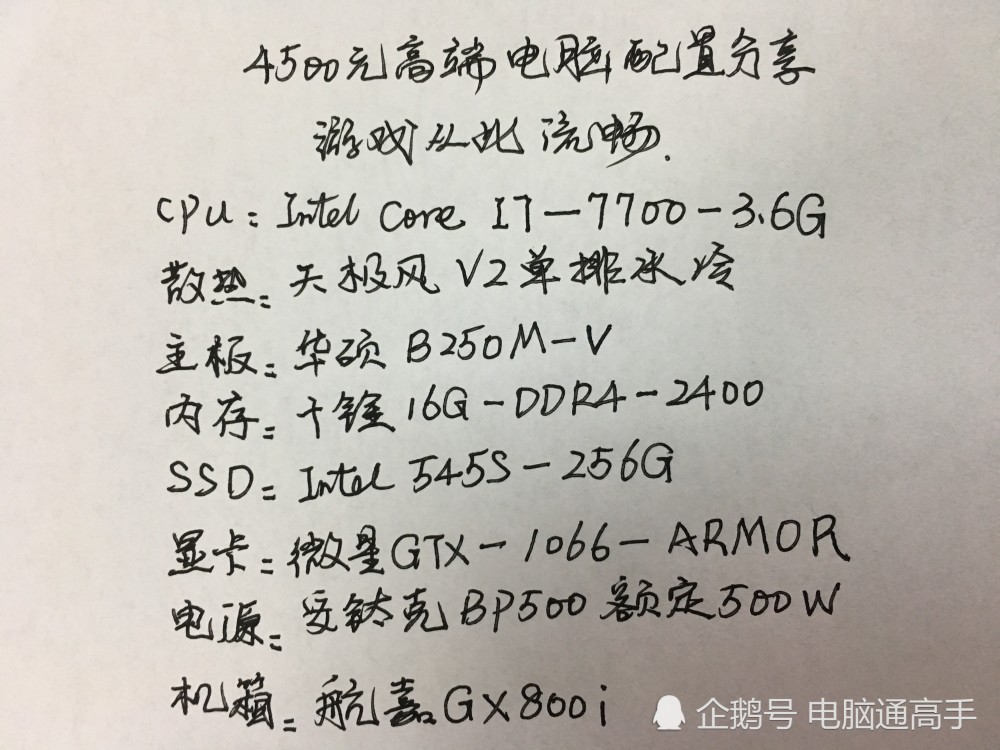 4500元高端电脑配置分享
游戏从此流畅.
CPU: Intel Core I7-7700-3.6G
散热: 天极风 V2单排水冷
主板: 华硕 B250M-V
内存: 十铨16G-DDR4-2400
SSD: Intel 545S-256G
显卡: 微星GTX-1066-ARMOR
电源: 安钛克BP500 额定500W
机箱: 航嘉GX800i
企鹅号 电脑通高手